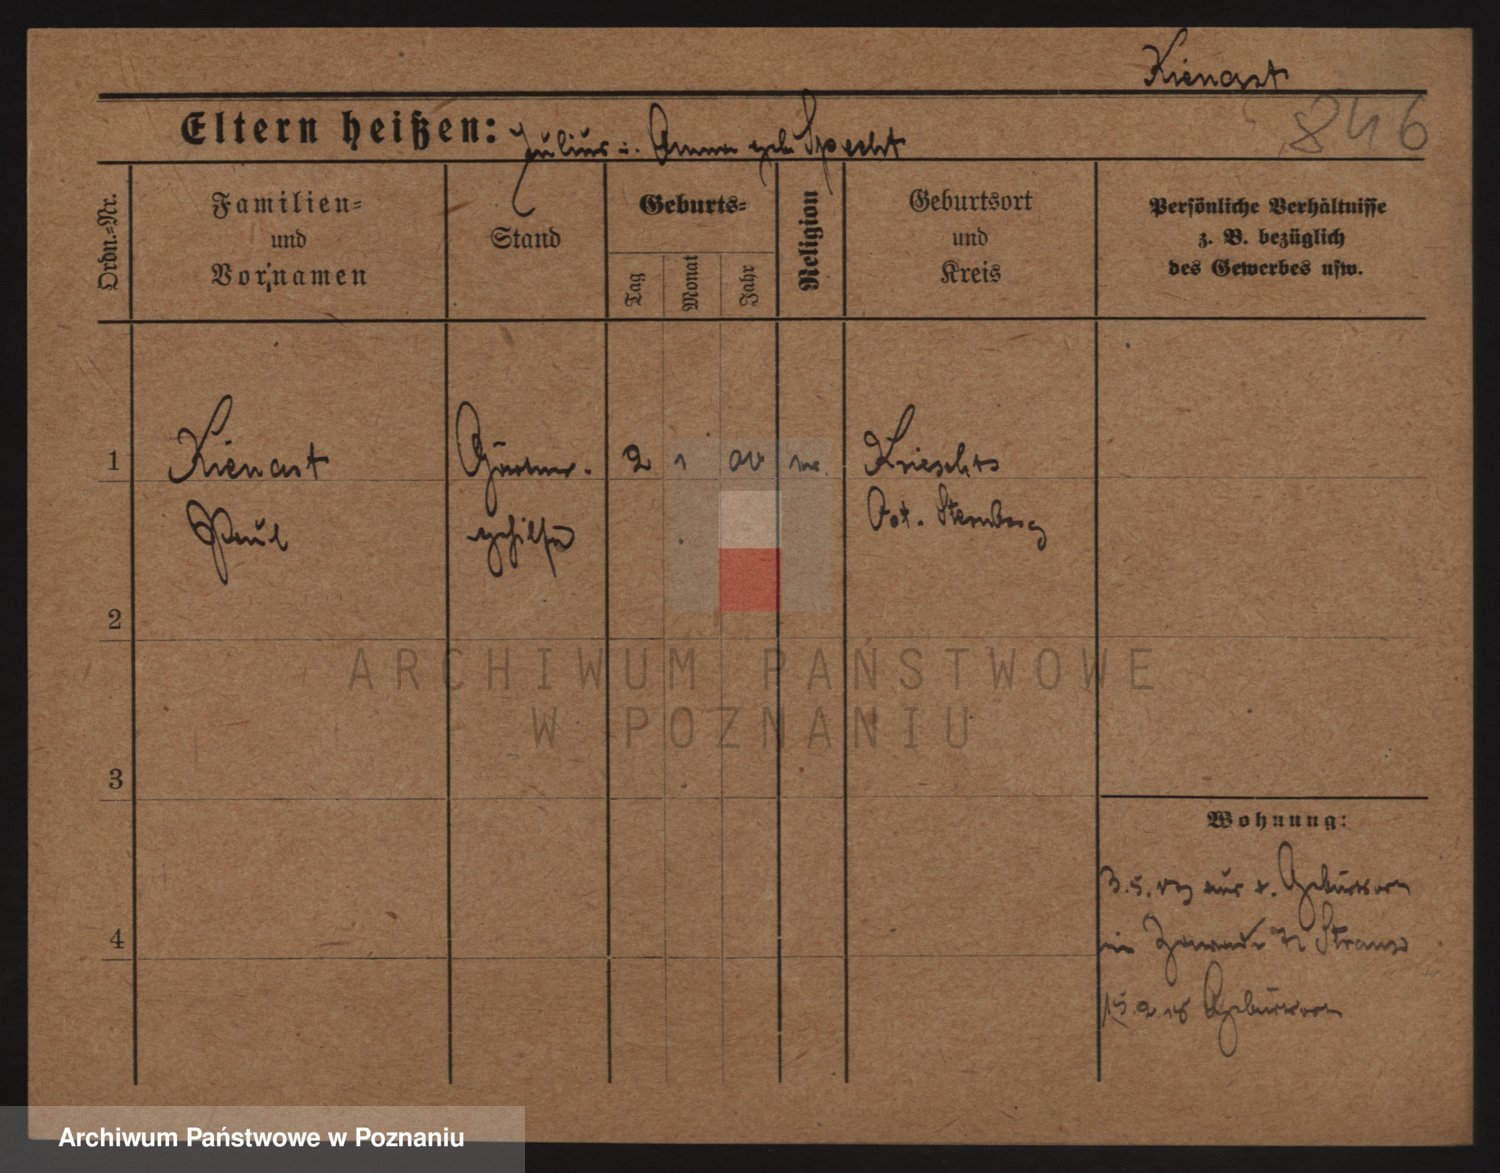 Kienast
846
Eltern heißen: Julius u. Anna geb. Specht
Ordn.-Nr.
Familien-
und
Vornamen
Stand
Geburts-
Tag
Monat
Jahr
Religion
Geburtsort
und
Kreis
Persönliche Verhältnisse
z. B. bezüglich
des Gewerbes usw.
1
Kienast
Gärtner-
2
1
Kriescht
Paul
gehilfe
Ost. Sternberg
2
ARCHIWUM PAŃSTWOWE
W POZNANIU
3
Wohnung:
3.5. aus d. Geburtsort
4
15.2.18 Geburtsort
Archiwum Państwowe w Poznaniu